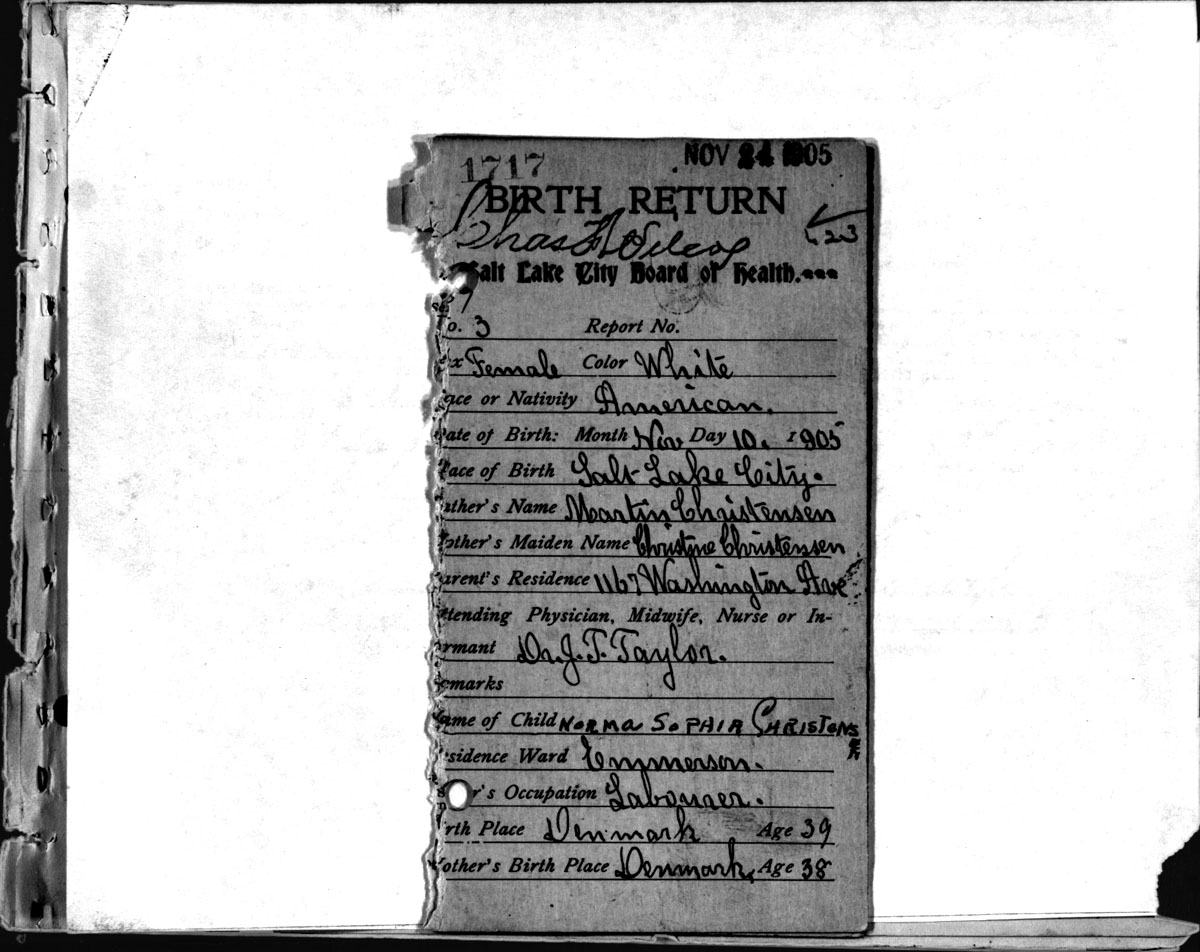 1717 NOV 24 1905
BIRTH RETURN
Chas F Wilcox
Salt Lake City Board of Health.
o. 3 Report No.
x Female Color White
ace or Nativity American.
ate of Birth: Month Nov Day 10. 1905
lace of Birth Salt Lake City.
ather's Name Martin Christensen
other's Maiden Name Christine Christenssen
arent's Residence 1167 Washington Ave
ttending Physician, Midwife, Nurse or In-
ormant Dr. J. T. Taylor.
emarks
ame of Child NORMA SOPHIA CHRISTENSEN
esidence Ward Emmerson.
r's Occupation Labourer.
rth Place Denmark Age 39
other's Birth Place Denmark, Age 38